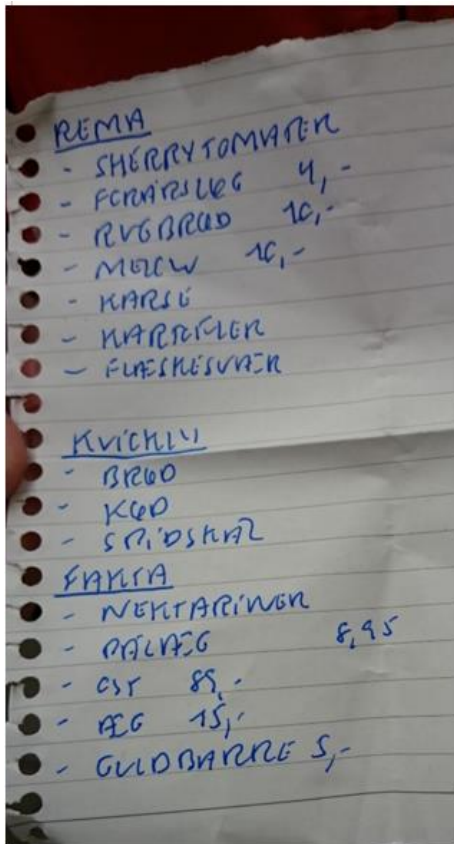 REMA
- SHERRYTOMATER
- FORÅRSLØG 4,-
- RUGBRØD 10,-
- MELON 10,-
- KARSE
- KARTOFLER
- FLÆSKESVÆR
KVICKLY
- BRØD
- KØD
- SPIDSKÅL
FAKTA
- NEKTARINER
- PÅLÆG 8,95
- OST 89,-
- ÆG 15,-
- GULDBARRE 5,-